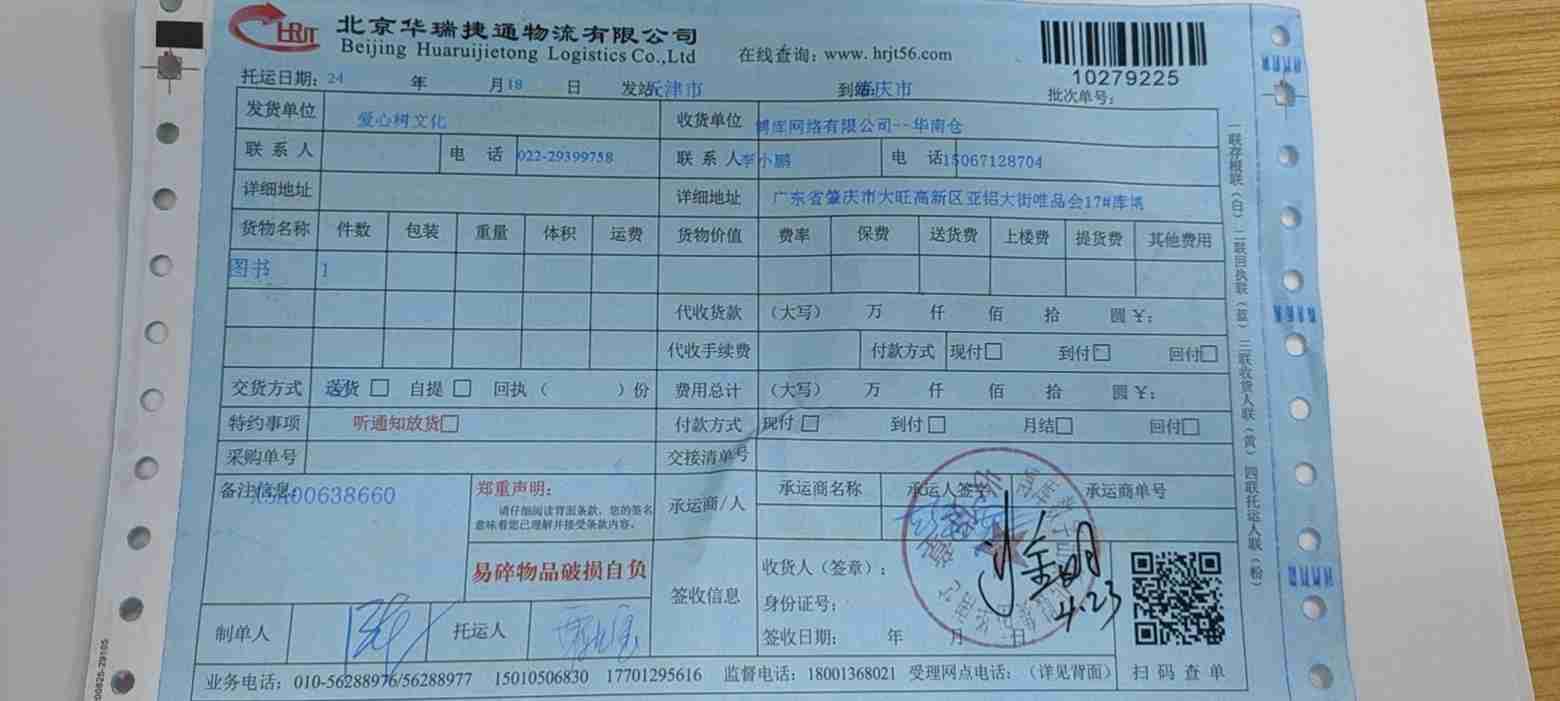 HRJT 北京华瑞捷通物流有限公司
Beijing Huaruijietong Logistics Co.,Ltd 在线查询：www.hrjt56.com
10279225
托运日期：24 年 月18 日 发站 天津市 到站 肇庆市 批次单号：
发货单位 爱心树文化 收货单位 博库网络有限公司--华南仓
联系人 电话 022-29399758 联系人 李小鹏 电话 15067128704
详细地址 详细地址 广东省肇庆市大旺高新区亚铝大街唯品会17#库
货物名称 件数 包装 重量 体积 运费 货物价值 费率 保费 送货费 上楼费 提货费 其他费用
图书 1
代收货款 （大写） 万 仟 佰 拾 圆 ¥：
代收手续费 付款方式 现付□ 到付□ 回付□
交货方式 送货 □ 自提 □ 回执（ ）份 费用总计 （大写） 万 仟 佰 拾 圆 ¥：
特约事项 听通知放货□ 付款方式 现付 □ 到付□ 月结□ 回付□
采购单号 交接清单号
备注信息： 00638660 郑重声明： 承运商/人 承运商名称 承运人签字 承运商单号
请仔细阅读背面条款，您的签名
意味着您已理解并接受条款内容。
易碎物品破损自负
签收信息 收货人（签章）：
身份证号：
签收日期： 年 月 日
4.23
制单人 托运人
扫码查单
业务电话：010-56288976/56288977 15010506830 17701295616 监督电话：18001368021 受理网点电话：（详见背面）
一联存根联（白） 二联回执联（蓝） 三联收货人联（黄） 四联托运人联（粉）